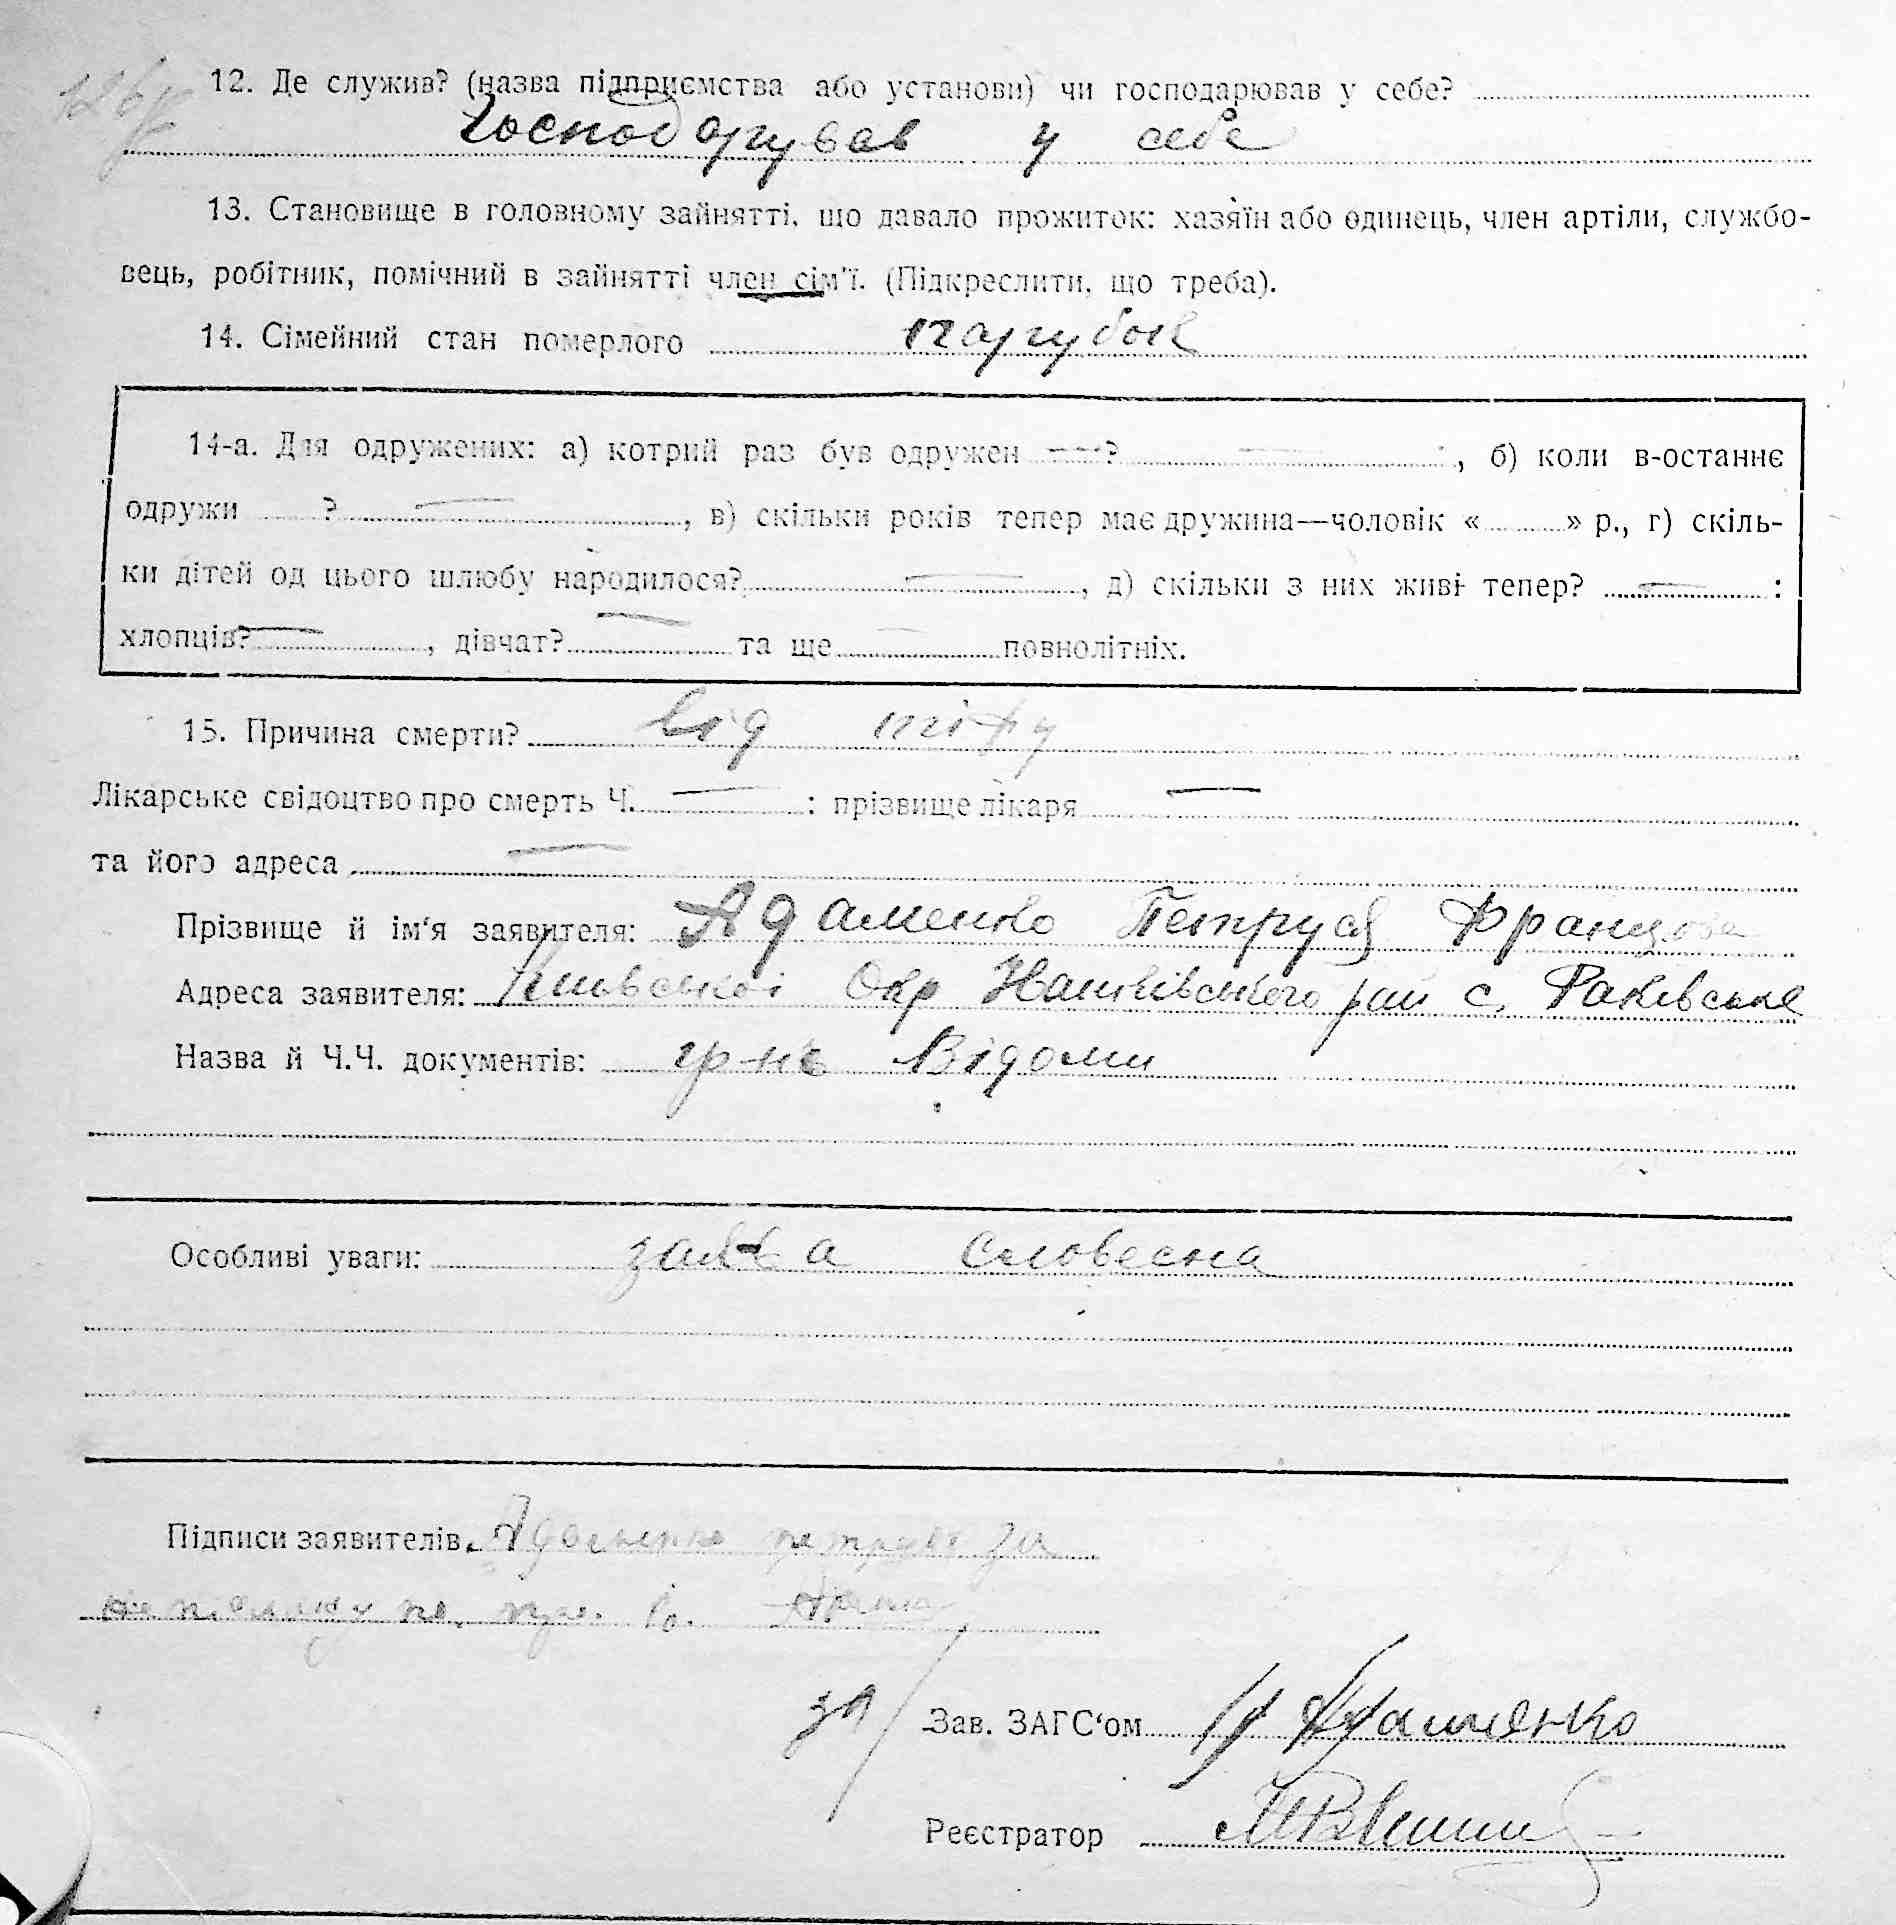 12. Де служив? (назва підприємства або установи) чи господарював у себе?
Господарував у себе
13. Становище в головному зайнятті, що давало прожиток: хазяїн або одинець, член артіли, службо-
вець, робітник, помічний в зайнятті член сім'ї. (Підкреслити, що треба).
14. Сімейний стан померлого парубок
14-а. Для одружених: а) котрий раз був одружен ? , б) коли в-останнє
одружи ? , в) скільки років тепер має дружина—чоловік « » р., г) скіль-
ки дітей од цього шлюбу народилося? , д) скільки з них живі тепер? :
хлопців? , дівчат? та ще повнолітніх.
15. Причина смерти? від тіфу
Лікарське свідоцтво про смерть Ч. : прізвище лікаря
та його адреса
Прізвище й ім'я заявителя: Адаменко Петруся Францова
Адреса заявителя: Окр рай с. Раківське
Назва й Ч.Ч. документів: гр-не Відоми
Особливі уваги: заява словесна
Підписи заявителів. Адаменко
Зав. ЗАГС'ом
Реєстратор